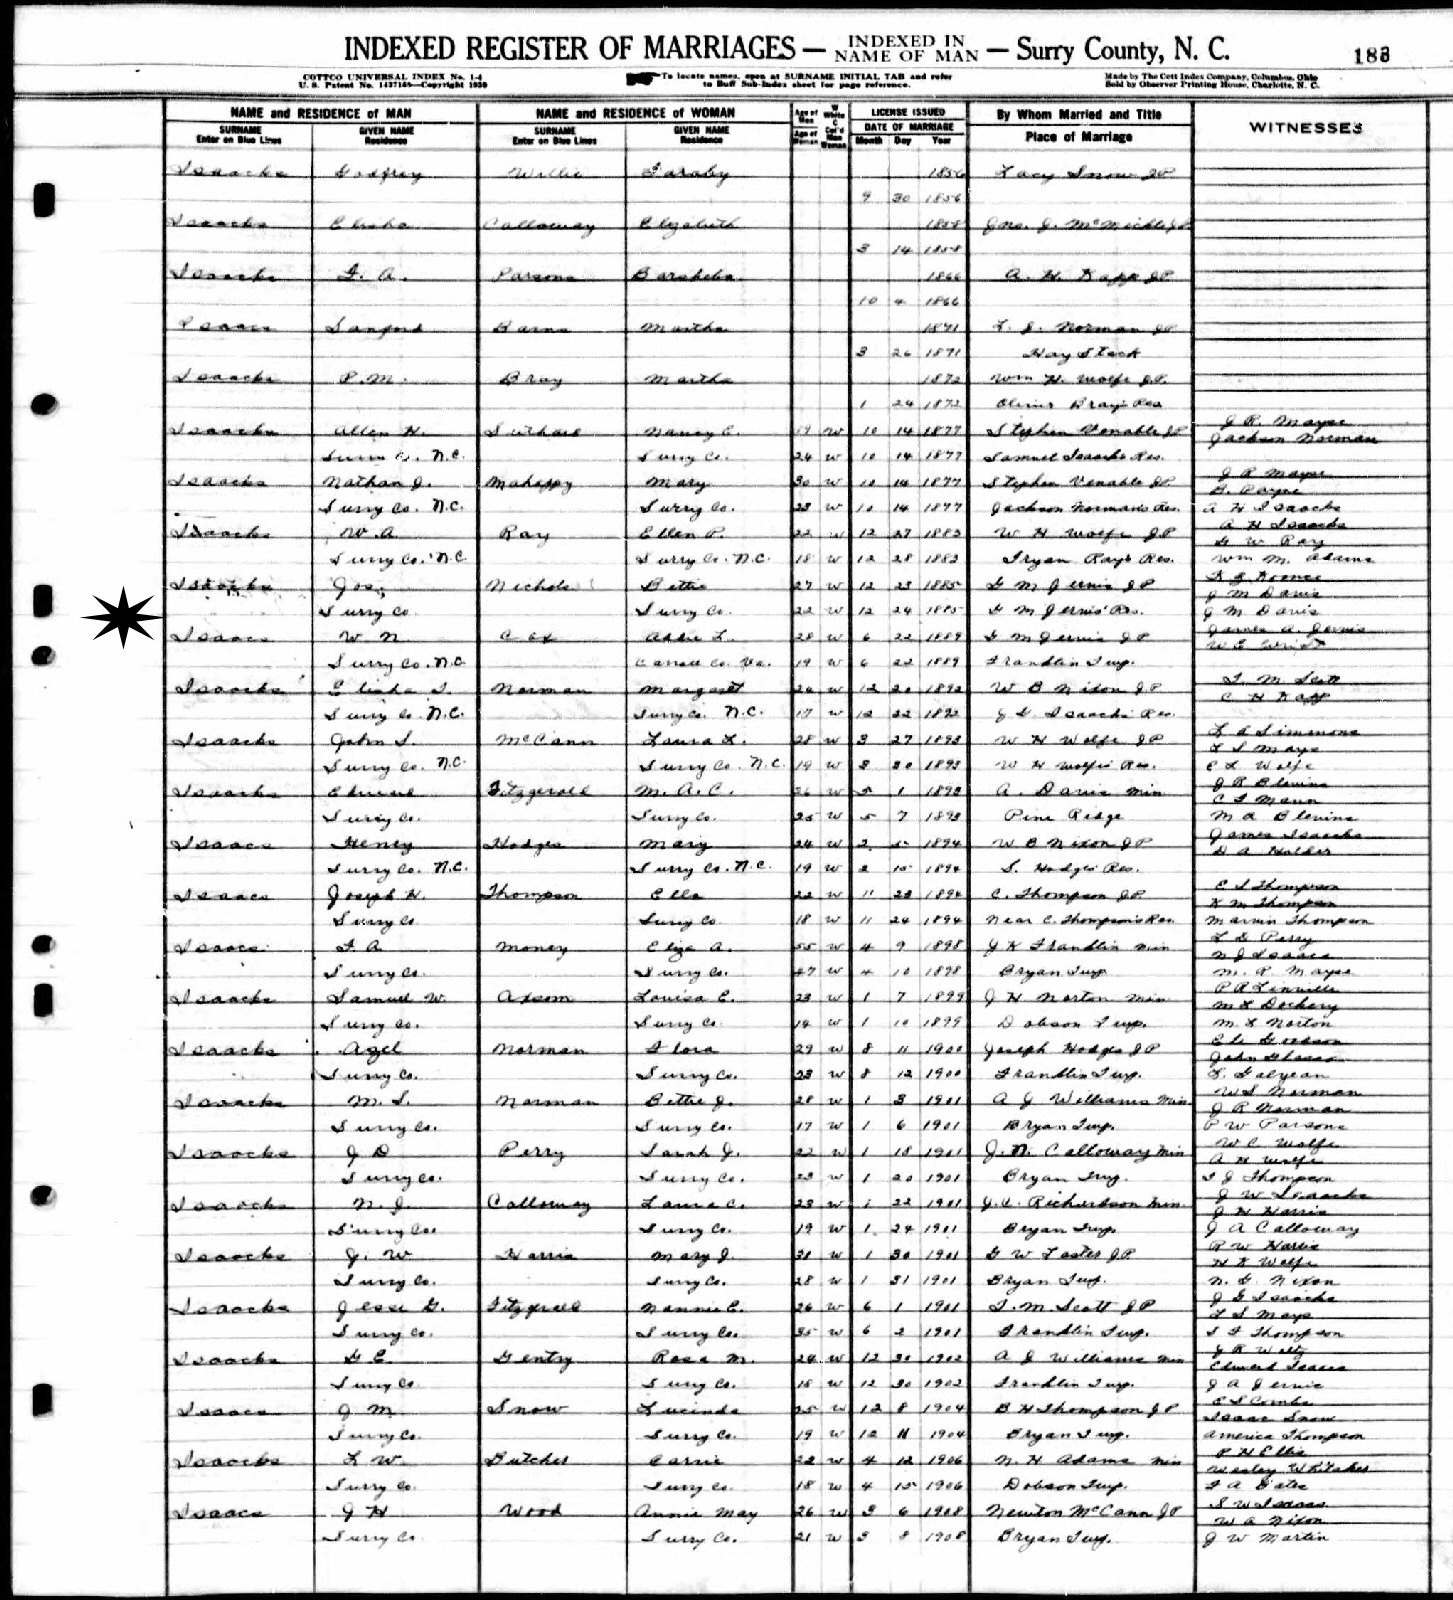 INDEXED REGISTER OF MARRIAGES — INDEXED IN NAME OF MAN — Surry County, N. C.
COTTCO UNIVERSAL INDEX No. 1-4 To locate names, open at SURNAME INITIAL TAB and refer Made by The Cott Index Company, Columbus, Ohio
U. S. Patent No. 1437169—Copyright 1930 to Buff Sub-Index sheet for page reference. Sold by Observer Printing House, Charlotte, N. C.
NAME and RESIDENCE OF MAN NAME and RESIDENCE OF WOMAN Age of Man W White LICENSE ISSUED By Whom Married and Title WITNESSES
SURNAME GIVEN NAME SURNAME GIVEN NAME Age of Woman C Col'd Man Woman DATE OF MARRIAGE Place of Marriage
Enter on Blue Lines Residence Enter on Blue Lines Residence Month Day Year
Isaacks Godfrey Willie Faraby 1856 Lacy Snow JP
9 30 1856
Isaacks Elisha Calloway Elizabeth 1858 Jno. J. McMickle JP
3 14 1858
Isaacks F. A. Parsons Barsheba 1866 A. H. Kapp JP
10 4 1866
Isaacs Sanford Barns Martha 1871 L. J. Norman JP
3 26 1871 Hay Stack
Isaacks P. M. Bray Martha 1872 Wm H. Wolfe J.P.
1 24 1872 Oliver Bray's Res
Isaacks Allen H. Nancy E. 19 W 10 14 1877 Stephen Venable JP J R. Mayse
Jackson Norman
Surry Co. N.C. Surry Co. 24 W 10 14 1877 Samuel Isaacks Res.
Isaacks Nathan J. Mahappy Mary 30 W 10 14 1877 Stephen Venable JP J R Mayse
B. Payne
Surry Co. N.C. Surry Co. 23 W 10 14 1877 Jackson Norman's Res. A H Isaacks
Isaacks W. A. Ray Ellen P. 22 W 12 27 1883 W H Wolfe JP A H Isaacks
G W Ray
Surry Co. N.C Surry Co. N.C. 18 W 12 28 1883 Tryan Ray's Res. Wm M. Adams
Isaacks Jos. Nichols Bettie 27 W 12 23 1885 G M Jervis JP
J M Davis
Surry Co Surry Co. 22 W 12 24 1885 G M Jervis' Res. J M Davis
Isaacs W N Cox Addie L. 28 W 6 22 1889 G M Jervis JP James A. Jervis
Surry Co. N.C Carroll Co. Va. 19 W 6 22 1889 Franklin Twp.
Isaacks Elisha I. Norman Margaret 26 W 12 20 1892 W B Nixon JP T. M. Scott
C H Kapp
Surry Co. N.C. Surry Co. N.C. 17 W 12 22 1892 J G Isaacks Res.
Isaacks John S. McCann Laura L. 28 W 3 27 1893 W H Wolfe JP L A Simmons
L S Mays
Surry Co. N.C Surry Co. N.C. 19 W 3 30 1893 W H Wolfe's Res. E L Wolfe
Isaacks Edward Fitzgerald M. A. C. 26 W 5 1 1893 A. Davis Min J R Blevins
C F Mann
Surry Co. Surry Co. 25 W 5 7 1893 Pine Ridge M A Blevins
Isaacs Henry Hodges Mary 24 W 2 1894 W B Nixon JP James Isaacks
D A Holder
Surry Co. N.C. Surry Co. N.C. 19 W 2 15 1894 S. Hodges Res.
Isaacs Joseph H. Thompson Ella 22 W 11 23 1894 C. Thompson JP. E S Thompson
K M Thompson
Surry Co Surry Co 18 W 11 24 1894 Near C. Thompson's Res. Marvin Thompson
Isaacs F A Money Eliza A. 55 W 4 9 1898 J H Franklin Min L G Perry
N J Isaacs
Surry Co. Surry Co. 47 W 4 10 1898 Bryan Twp M. R Mayse
Isaacks Samuel W. Axsom Louisa E. 23 W 1 7 1899 J H Norton Min P R Linville
M L Dockery
Surry Co. Surry Co 14 W 1 10 1899 Dobson Twp. M. L Norton
Isaacks Azel Norman Flora 29 W 8 11 1900 Joseph Hodges JP
Surry Co. Surry Co. 23 W 8 12 1900 Franklin Twp. L. Galyean
Isaacks M. S. Norman Bettie J. 28 W 1 3 1901 A J Williams Min. W S Norman
J R Norman
Surry Co. Surry Co. 17 W 1 6 1901 Bryan Twp. P W Parsons
Isaacks J D Perry Sarah J. 22 W 1 18 1901 J. N. Calloway Min W C Wolfe
A H Wolfe
Surry Co. Surry Co. 23 W 1 20 1901 Bryan Twp. S J Thompson
Isaacks N. J. Calloway Laura C. 23 W 1 22 1901 J. C. Richardson Min. J W Isaacks
J H Harris
Surry Co. Surry Co. 19 W 1 24 1901 Bryan Twp. J A Calloway
Isaacks J. W Harris Mary J. 21 W 1 30 1901 G W Laster JP R W Harris
H K Wolfe
Surry Co. Surry Co. 28 W 1 31 1901 Bryan Twp. N. G. Nixon
Isaacks Jesse G. Fitzgerald Nannie E. 26 W 6 1 1901 T. M. Scott JP J G Isaacks
L S Mays
Surry Co. Surry Co. 35 W 6 2 1901 Franklin Twp. S F Thompson
Isaacks G E. Gentry Rosa M. 24 W 12 30 1902 A J Williams Min J R Waltz
Edward Isaacs
Surry Co Surry Co. 18 W 12 30 1902 Franklin Twp. J A Jervis
Isaacs J M Snow Lucinda 25 W 12 8 1904 B H Thompson JP E S Combs
Isaac Snow
Surry Co. Surry Co. 19 W 12 11 1904 Bryan Twp. America Thompson
Isaacks L W Butcher Carrie 22 W 4 12 1906 N. H Adams Min P H Ellis
Wesley Whitaker
Surry Co. Surry Co. 18 W 4 15 1906 Dobson Twp. F A Bates
Isaacs J H Wood Annie May 26 W 3 6 1908 Newton McCann JP S W Isaacs
W A Nixon
Surry Co Surry Co. 21 W 3 8 1908 Bryan Twp. J W Martin